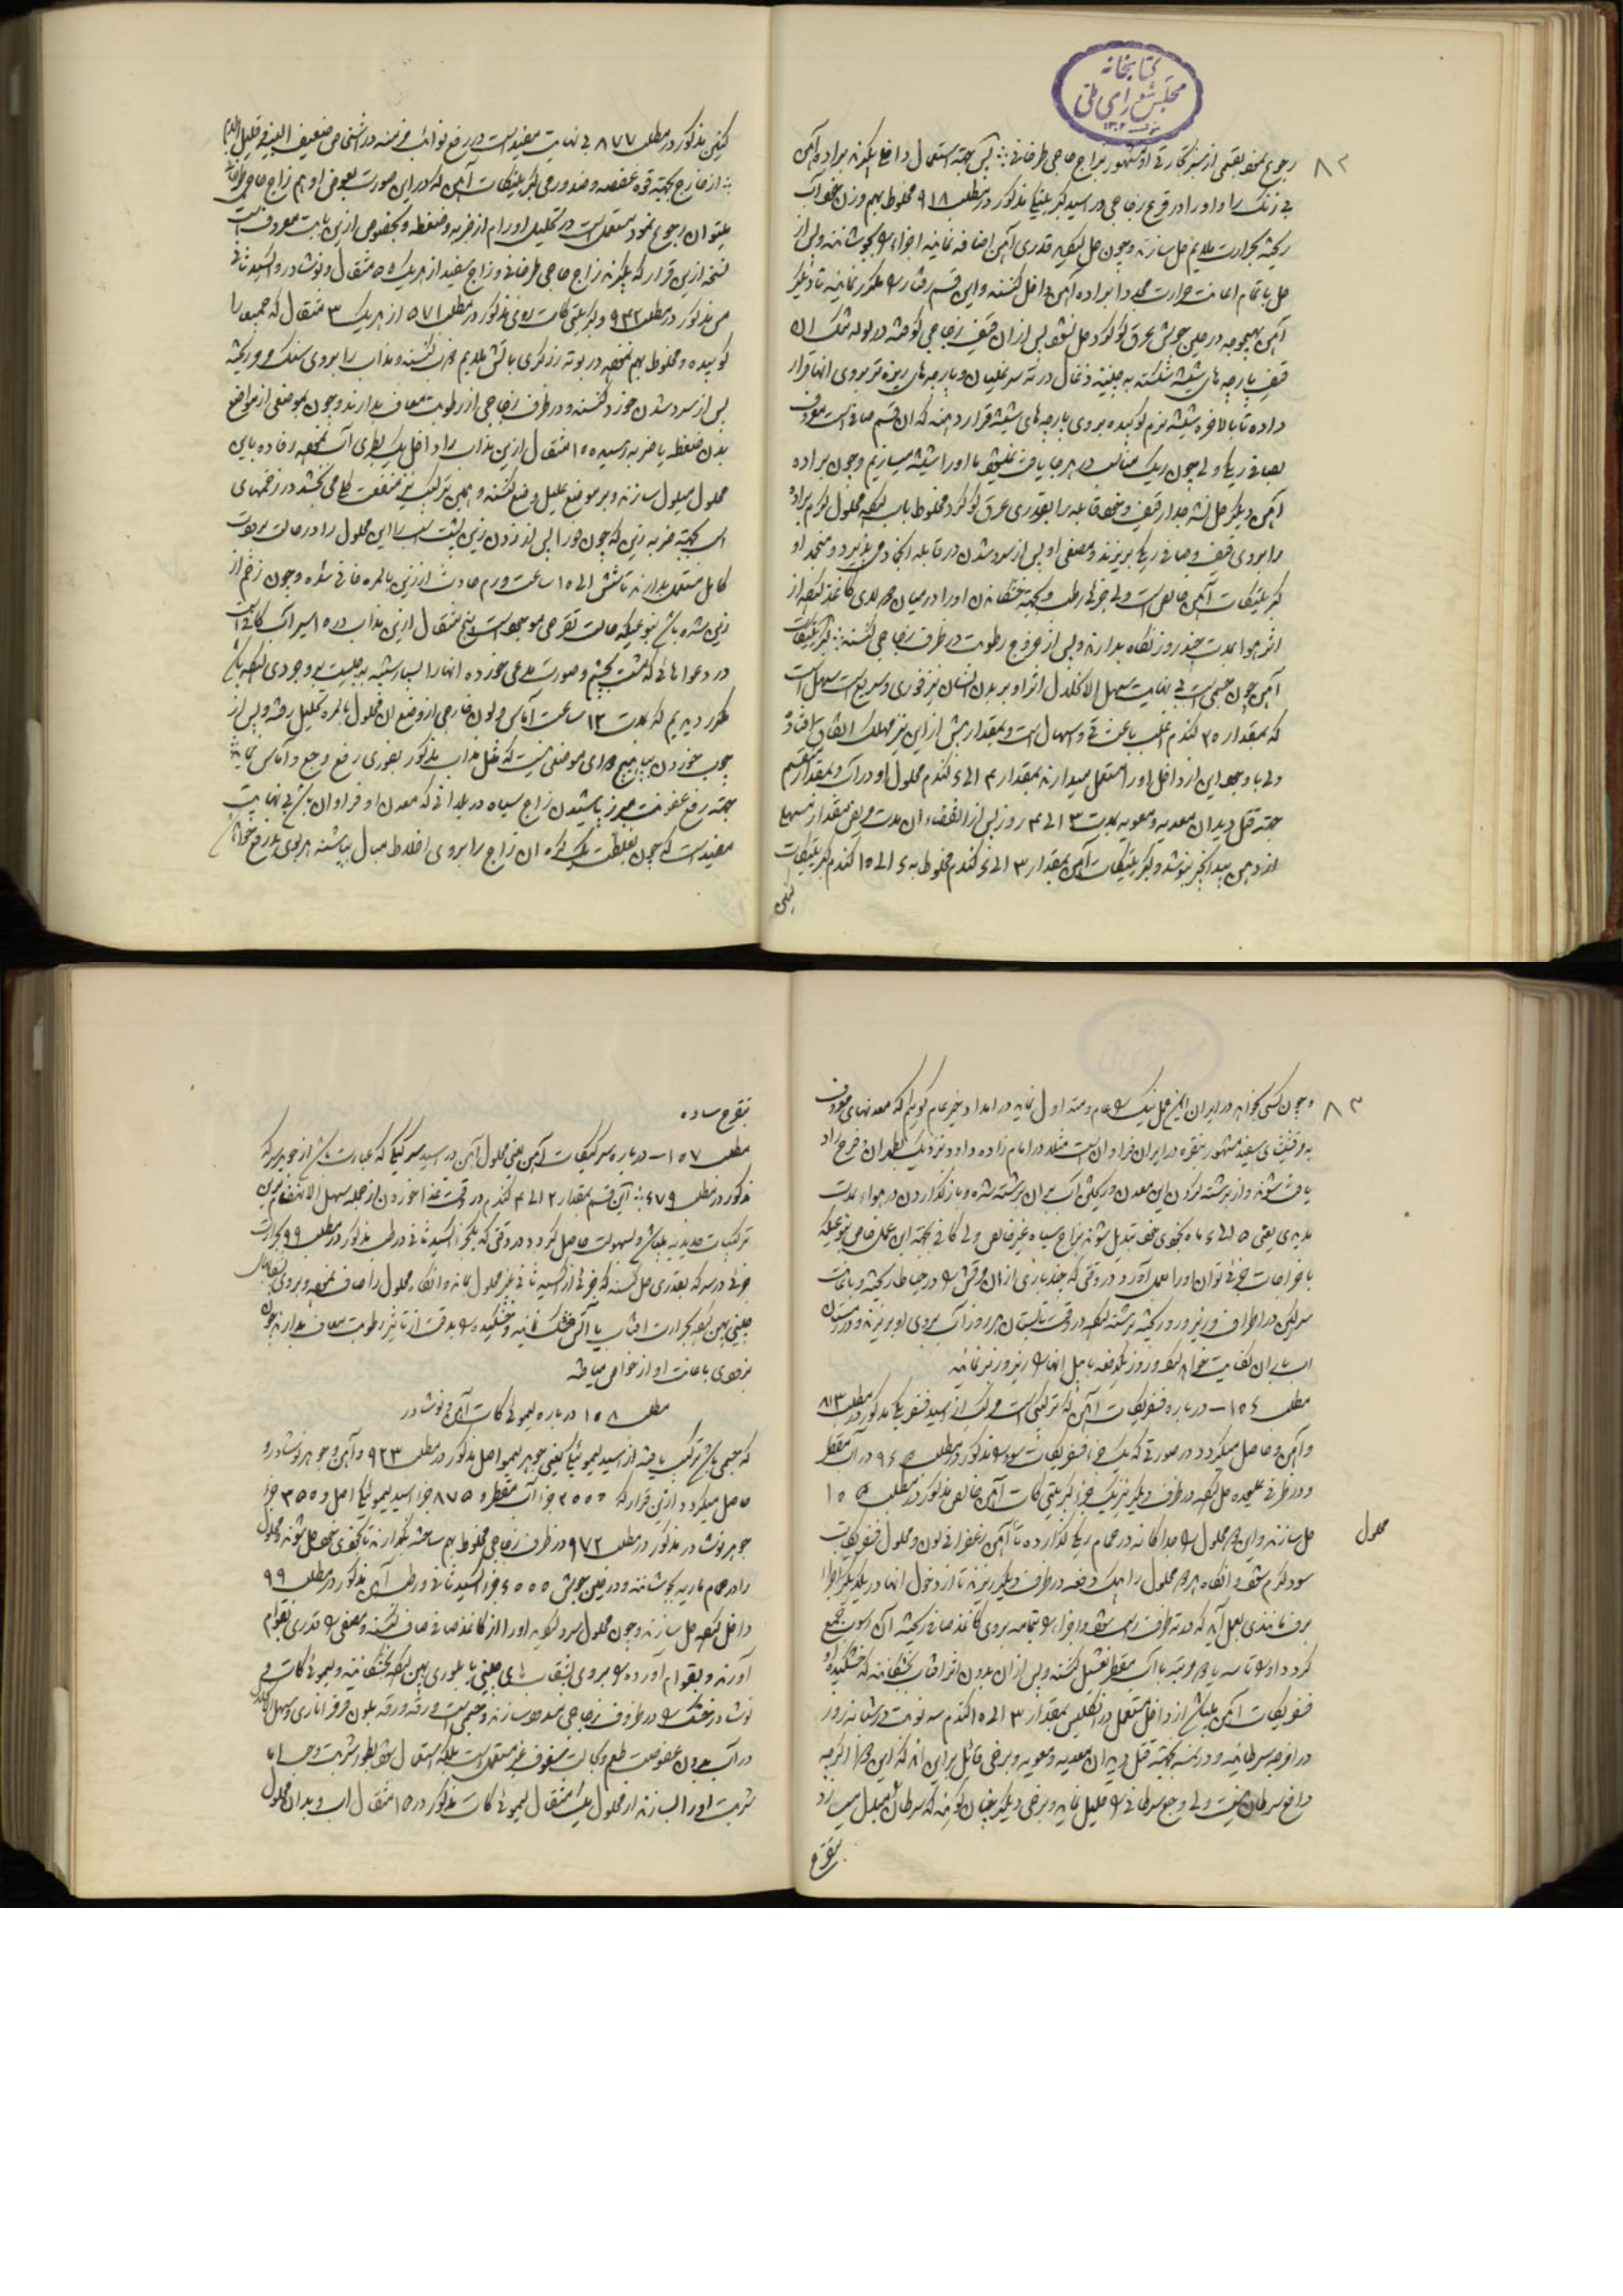 کتابخانه
مجلس شورای ملی
۸۲
رجوع نمود بقسمی از سبز تجارتی او مشهور بزاج حاجی طرخانی پس جهة استعمال داخل بگیرند براده آهن
بی زنک را و او را در قرع زجاجی در اسید کبریتیکی مذکور در مطلب ۹۱۸ مخلوط بهم وزن خود آب
ریخته بحرارت ملایم حل سازند و چون حل لیکه قدری آهن اضافه نمایند اجزاء را بجوشانند و پس از
حل با تمام اعانت حرارت مجددا براده آهن داخل کنند و این قسم رفتار را مکرر نمایند تا دیگر
آهن بهیچوجه در حین جوش عرق گوگرد حل نشود پس از آن قیف زجاجی گرفته در لوله تنک آن
قیف پارچه های شیشه شکسته به جثه ذغال در ته سر غلیان و پارچه های ریزه تر بروی انها قرار
داده تا بالاخره شیشه نرم کوبیده بروی پارچه های شیشه قرار دهند که ان قسم صافی است معروف
بصافی ریگی ولی چون ریک مناسب در هر جا یافت نمیشود با او را شیشه میسازیم و چون براده
آهن دیگر حل نشد جدار قیف و خود قابله را بقدری عرق گوگرد مخلوط باب لیکه محلول گرم براده
را بروی قیف و صافی ریگی بریزند و مصفی او پس از سرد شدن در قابله انجماد می پذیرد و منجمد او
کبریتیکات آهن خالص است ولی جزئی رطب و بجهة خشکاندن او را در میان دو لای کاغذ لیکه از
اثر هوا بمدت چند روز نگاه بدارند و پس از خروج رطوبت در ظرف زجاجی کنند کبریتیکات
آهن چون جسمی است بی نهایت سهل الانحلال اثر او بر بدن انسان نیز فوری و سریع است سهل است
که بمقدار ۲۵ گندم اغلب باعث قی و اسهال است و بمقدار بیش از این نیز مهلک اتفاق افتاده
ولی با وجود این از داخل او را مستعمل میدارند بمقدار ۲ الی ۴ گندم محلول او در آب و بمقدار منقسم
جهة قتل دیدان معدیه و معویه بمدت ۳ الی ۴ روز پس از انقضاء ان مدت مریض بمقدار مسهل
از دهن بید انجیر بنوشد و کبریتیکات آهن بمقدار ۳ الی ۶ گندم مخلوط به ۶ الی ۱۵ گندم کبریتیکات
کنین
کنین مذکور در مطلب ۸۷۷ بی نهایت مفید است در رفع نوائب مزمنه در اشخاص ضعیف البنیه و قلیل الدم
از خارج بجهة قوه عفصه و ضد ورمی کبریتیکات آهن که در این صورت بعوض او هم زاج حاجی طرخانی
میتوان رجوع نمود مستعمل است در تحلیل اورام از ضربه و ضغطه و بخصوص از این بابت معروف است
نسخه ازین قرار که بگیرند زاج حاجی طرخانی و زاج سفید از هر یک ۵ مثقال و نوشادر و اکسید ثانی
مس مذکور در مطلب ۹۳۲ و کبریتی کات روی مذکور در مطلب ۵۷۱ از هر یک ۳ مثقال که جمیع را
کوبیده و مخلوط بهم نموده در بوته زرگری باتش ملایم ذوب کنند و مذاب را بروی سنگ مرمر ریخته
پس از سرد شدن خورد کنند و در ظرف زجاجی از رطوبت معاف بدارند و چون بموضعی از مواضع
بدن ضغطه یا ضربه رسیده ۱۵ مثقال ازین مذاب را داخل یک بطری آب نموده رفاده باین
محلول مبلول سازند و بر موضع علیل وضع کنند و همین ترکیب نیز منفعت کلی می بخشد در زخمهای
اسب بجهة ضربه زین که چون فورا پس از زدن زین پشت اسب را این محلول را در حالت برودت
کامل مستعمل بدارند تا شش الی ۱۵ ساعت ورم حادث از زین بالمره فانی شده و چون زخم از
زین شده باشد بنوعیکه حالت تقرحی موجود است پنج مثقال ازین مذاب در ۵ سیر آب کافی است
در دعواهائی که مشت بچشم و صورت مدعی خورده انها را بسیار شبیه به جلبیت بوجودی لیکه باشد
مکرر دیدیم که بمدت ۱۲ ساعت آماس و لون خارجی از وضع ان محلول بالمره تحلیل رفته و پس از
چوب خوردن بپا هیچ دوای موضعی نیست که مثل مذاب مذکور بفوری رفع وجع و آماس نماید
جهة رفع عفونت مبرز پاشیدن زاج سیاه در بلدانی که معدن او فراوان باشد بی نهایت
مفید است که چون بغلظت یک گره ان زاج را بروی اخلاط مبال بپاشند هر بوی بد رفع خواهد شد
۸۳
و چون کسی بخواهد در ایران این عمل نیک را عام و متداول نماید در امداد خیر عام گوییم که معدنهای معروف
به مرقشیشای سفید مشهور بنقره در ایران فراوان است مثلا در امام زاده داود نزدیک بطهران و فرح زاد
یافت شوند و از برشته کردن این معدن و ریختن آب بر ان برشته شده و باز گذاردن در هوا بمدت
مدیدی یعنی ۵ الی ۶ ماه بخودی خود تبدیل شوند بزاج سیاه غیر خالص ولی کافی بجهة این عمل خاص بنوعیکه
با خراجات جزئی توان او را بعمل آورد در وقتی که چند باری از ان مرقشیشا را در حیاط ریخته و باعانت
سرگین در اطراف و زیر و رو ریخته برشته لیکه در وقت تابستان هر روز آب بروی او بریزند و در زمستان
اب باران کفایت خواهد کرد و روز یکدفعه با بیل انها را زیر و زبر نمایند
مطلب ۱۵۶ – درباره فسفریکات آهن که ترکیبی است مرکب از اسید فسفریکی مذکور در مطلب ۸۱۳
و آهن و حاصل میگردد در صورتی که یک جزء فسفریکات سود را مذکور در مطلب ۹۶۵ در آب مقطر
و در ظرفی علیحده حل لیکه در ظرف دیگر نیز یک جزء کبریتی کات آهن خالص مذکور در مطلب ۱۵۵
حل سازند و این دو محلول را جداگانه در حمام ریگی گذارده تا آهن زعفرانی لون و محلول فسفریکات
محلول
سود گرم شود و انگاه هر دو محلول را بیک دفعه در ظرف دیگر ریزند تا از دخول انها در یکدیگر اجزاء
برف مانندی بعمل آید که در ته ظرف راسب شود و اجزاء را بتمامه بروی کاغذ صافی ریخته آن رسوب جمع
گردد او را تا سه یا چهار مرتبه با آب مقطر تغسیل کنند و پس از ان بدون اثر افتاب بخشکانند که خشکیده او
فسفریکات آهن میباشد از داخل مستعمل در انگلیس بمقدار ۳ الی ۱۵ گندم سه نوبت در شبانه روز
در اورام سرطانیه و در نمسه بجهة قتل دیدان معدیه و معویه و برخی قائل بر این اند که این دوا اگر چه
دافع سرطان نیست ولی وجع سرطانی را قلیل نماید و برخی دیگر چنان گویند که سرطان مبدل میسازد
بتقرح
بتقرح ساده
مطلب ۱۵۷ – درباره سرکیکات آهن یعنی محلول آهن در اسید سرکیکی که عبارت باشد از جوهر سرکه
مذکور در مطلب ۶۷۹ این قسم بمقدار ۲ الی ۴ گندم در وقت غذا خوردن از جمله سهل الانهضام ترین
ترکیبات حدیدیه میباشد و بسهولت حاصل گردد در وقتی که یکجزء اکسید ثانی در طب مذکور در مطلب ۹۹ بحرارت
جزئی در سرکه بقدری حل کنند که جزئی از اکسید ثانی غیر محلول بماند و انگاه محلول را صاف نموده و بروی بشقابهای
چینی پهن لیکه بحرارت افتاب یا آتش خشک نمایند و خشکیده را بدقت از تاثیر رطوبت معاف بدارند چون
بزودی باعانت او از خواص میافتد
مطلب ۱۵۸ درباره لیموئی کات آهن و نوشادر
که جسمی باشد ترکیب یافته از اسید لیموئیکی یعنی جوهر لیمو اصل مذکور در مطلب ۹۲۳ و آهن و جوهر نوشادر و
حاصل میگردد ازین قرار که ۲۵۵۵ جزء آب مقطر و ۸۷۵ جزء اسید لیموئیکی اصل و ۳۵۵ جزء
جوهر نوشادر مذکور در مطلب ۹۷۲ در ظرف زجاجی مخلوط بهم ساخته بگذارند تا بخودی خود حل شوند و محلول
را در حمام ماریه بجوشانند و در عین جوش ۶۵۵۵ جزء اکسید ثانی و رطب آهن مذکور در مطلب ۹۹
داخل لیکه حل سازند و چون محلول سرد لیکه او را از کاغذ صافی صاف کنند و مصفی را قدری بقوام
آورند و بقوام آورده را بروی بشقاب های چینی یا بلوری پهن لیکه بخشکانند و لیموئی کات آهن و
نوشادر خشک را در ظروف زجاجی مسدود سازند و جسمی است ورقه ورقه بلون قرمز اناری و سهل الانحلال
در آب بدون عفوصت طعم و بحالت سفوف غیر مستعمل است بلکه استعمال شود بطور شربت و حب اما
شربت او را بسازند از محلول یک مثقال لیموئی کات مذکور در ۱۵ مثقال اب و بدان محلول